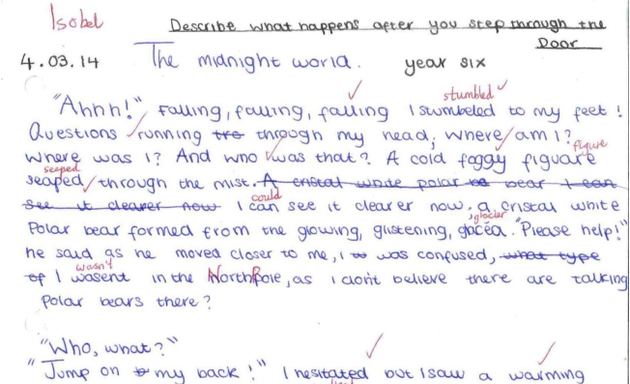 Isobel
Describe what happens after you step through the
Door
4.03.14 The midnight world. year six
stumbled
"Ahhh!" Falling, falling, falling I stumbeled to my feet!
Questions running tre through my head; where am I?
figure
Where was I? And who was that? A cold foggy figuare
seaped
seaped through the mist. A cristal white polar be bear I can
could
see it clearer now I can see it clearer now. a cristal white
glacier
Polar bear formed from the glowing, glistening, glacea. "Please help!"
he said as he moved closer to me, I was confused, what type
wasn't
of I wasent in the North Pole, as I don't believe there are talking
Polar bears there?
"Who, what?"
"Jump on my back!" I hesitated but I saw a warming